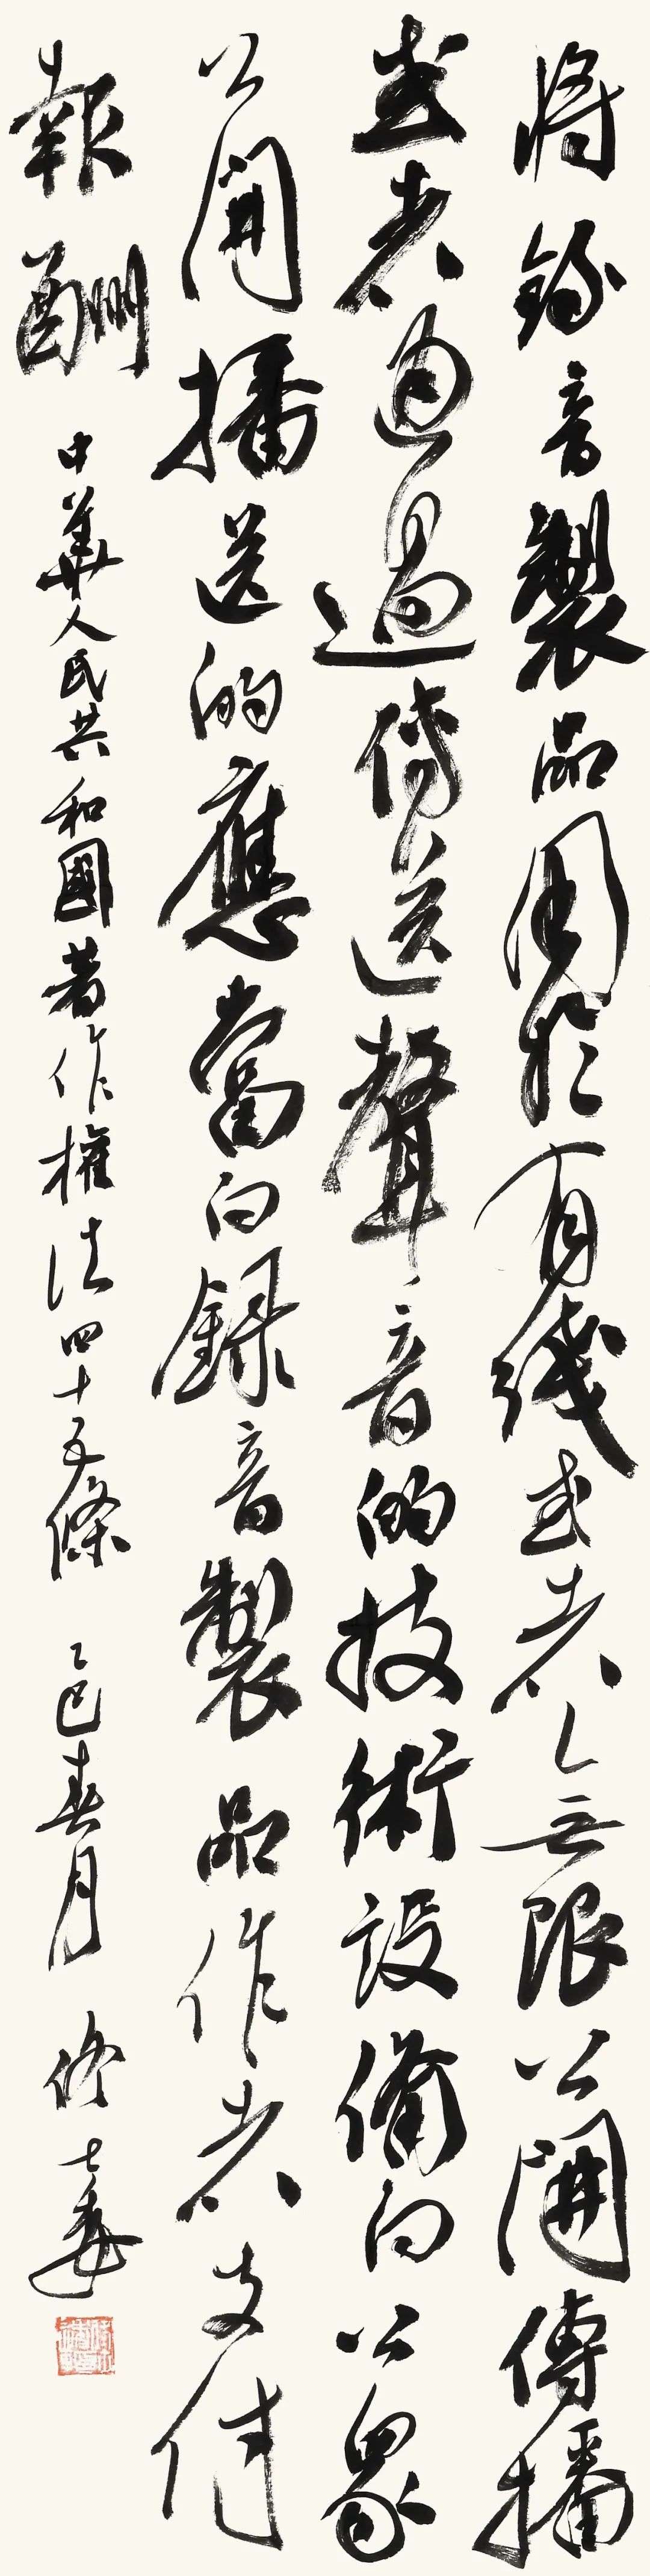 將錄音製品用於有綫或者無限公開傳播
或者通過傳送聲音的技術設備向公衆
公開播送的應當向録音製品作者支付
報酬 中華人民共和國著作權法四十五條 乙巳春月